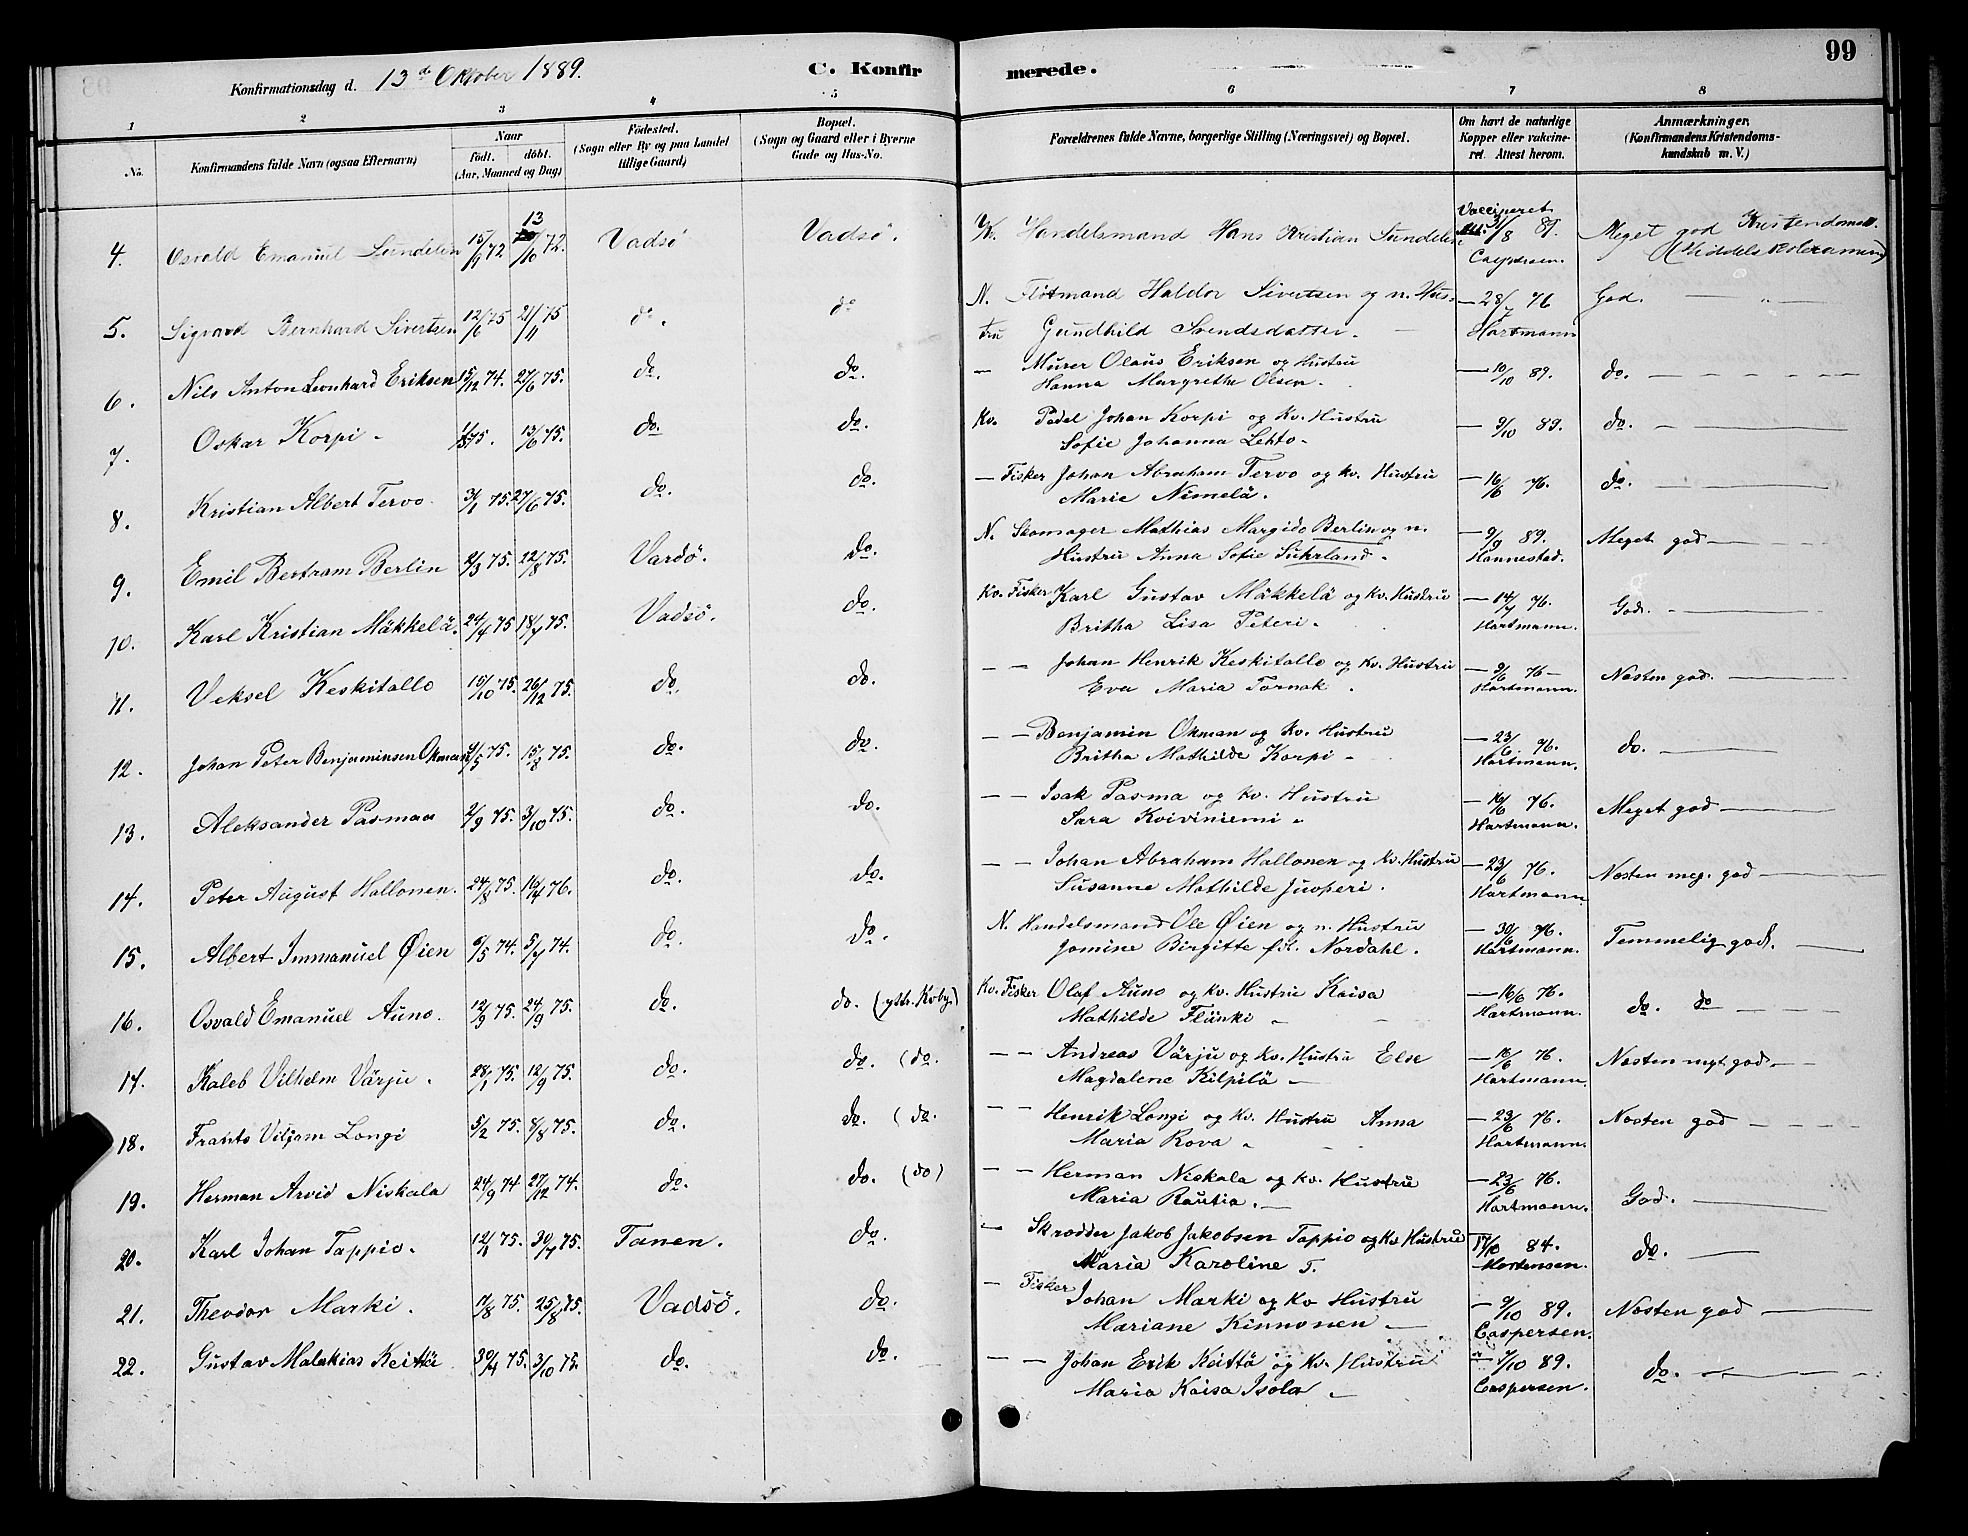 Konfirmationsdag d. 13de Oktober 1889. C. Konfirmerede. 99
1 2 3 4 5 6 7 8
No. Konfirmandens fulde Navn (ogsaa Efternavn) Naar født. døbt. (Aar, Maaned og Dag) Fødested. (Sogn eller By og paa Landet tillige Gaard) Bopæl. (Sogn og Gaard eller i Byerne Gade og Hus-No. Forældrenes fulde Navne, borgerlige Stilling (Næringsvei) og Bopæl. Om havt de naturlige Kopper eller vakcineret. Attest herom. Anmærkninger. (Konfirmandens Kristendomskundskab m. V.)
4. Osvald Emanuel Sundelin 15/9 72 13/10 72. Vadsö Vadsö. Handelsmand Hans Kristian Sundelin Vaccineret 31/8 89. Meget god Kristendomsk.
Caspersen. (Middelskoleexamen)
5. Sigvard Bernhard Sivertsen 12/6 75 21/11 75 do. do N. Flötmand Haldor Sivertsen og n. Hus- — 28/7 76 God. — „
tru Gundhild Svendsdatter. Hartmann
6. Nils Anton Leonhard Eriksen 15/12 74. 27/6 75. do. do. — Murer Olaus Eriksen og Hustru — 10/10 89. do. — — — — —
Hanna Margrethe Olsen.
7. Oskar Korpi - 75. 13/6 75. do. do. Kv. Pedel Johan Korpi og Kv. Hustru — 9/10 89. do. —
Sofie Johanna Lehto.
8. Kristian Albert Tervo. 3/1 75. 27/6 75. do. do. — Fisker Johan Abraham Tervo og Kv. Hustru — 16/6 76. do. —
Marie Nimelä.
9. Emil Bertram Berlin 2/3 75. 22/8 75. Vardö. do. N. Skomager Mathias Margido Berlin og n. — 9/9 89. Meget god —
Hustru Anna Sofie Suhrland. Hannestad.
10. Karl Kristian Mäkkelä. 24/4 75 18/7 75. Vadsö. do. Kv. Fisker Karl Gustav Mäkkelä og Kv. Hustru — 14/7 76. God. —
Britha Lisa Peteri. Hartmann.
11. Veksel Keskitallo 15/10 75. 26/12 75. do. do. — — Johan Henrik Keskitallo og Kv. Hustru — 9/6 76 — Næsten god. —
Eva Maria Tornak. Hartmann.
12. Johan Peter Benjaminsen Okman 9/5 75. 15/8 75. do. do. — — Benjamin Okman og Kv. Hustru — 23/6. 76. do. —
Britha Mathilde Korpi - Hartmann.
13. Aleksander Pasmaa 2/9 75. 3/10 75. do. do. — — Isak Pasma og Kv. Hustru — 16/6 76. Meget god —
Sara Koiviniemi. Hartmann.
14. Peter August Hallonen. 24/8 75. 16/4 76. do. do. — — Johan Abraham Hallonen og Kv. Hustru — 23/6 76. Næsten meg. god —
Susanne Mathilde Juoperi. Hartmann.
15. Albert Immanuel Øien 6/5 74. 5/7 74. do. do. N. Handelsmand Ole Øien og n. Hustru — 30/6 76. Temmelig god. —
Jomine Birgitte föt. Nordahl. Hartmann.
16. Osvald Emanuel Auno. 12/9 75. 24/9 75. do. do. (ytr. Kvby.) Kv. Fisker Olaf Auno og Kv. Hustru Kaisa — 16/6 76. do. do — — —
Mathilde Flänki - Hartmann.
17. Kaleb Vilhelm Värju. 28/1 75. 12/9 75. do. do. (do. — — Andreas Värju og Kv. Hustru Else — 16/6 76. Næsten mgt. god. —
Magdalene Kilpilä - Hartmann.
18. Frants Viljam Longi 5/2 75. 8/8 75. do. do. (do. — — Henrik Longi og Kv. Hustru Anna — 23/6 76. Næsten god — — — —
Maria Rova. Hartmann.
19. Herman Arvid Niskala 24/9 74 27/12 74. do. do. (do) — — Herman Niskala og Kv. Hustru — 23/6 76. God. —
Maria Rautia. — Hartmann.
20. Karl Johan Tappio. 12/1 75. 30/7 75. Tanen. do. — Skrædder Jakob Jakobsen Tappio og Kv Hustru 17/10 84. do. —
Maria Karoline T. Mortensen.
21. Theodor Marki. 17/8 75. 25/8 75. Vadsö. do. — Fisker Johan Marki og Kv Hustru — 9/10 89. Næsten god —
Mariane Kinnonen — Caspersen.
22. Gustav Malakias Keittä 30/4 75. 3/10 75. do. do. — — Johan Erik Keittä og Kv. Hustru — 7/10 89. do. —
Maria Kaisa Isola - Caspersen.